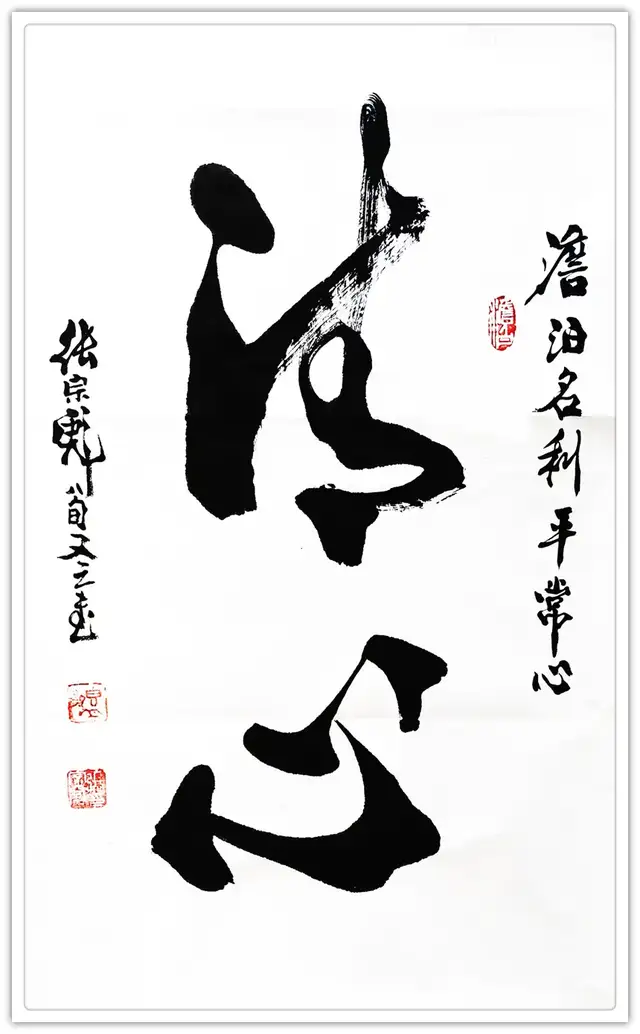 澹泊名利平常心
清心
张宗 八旬又三書